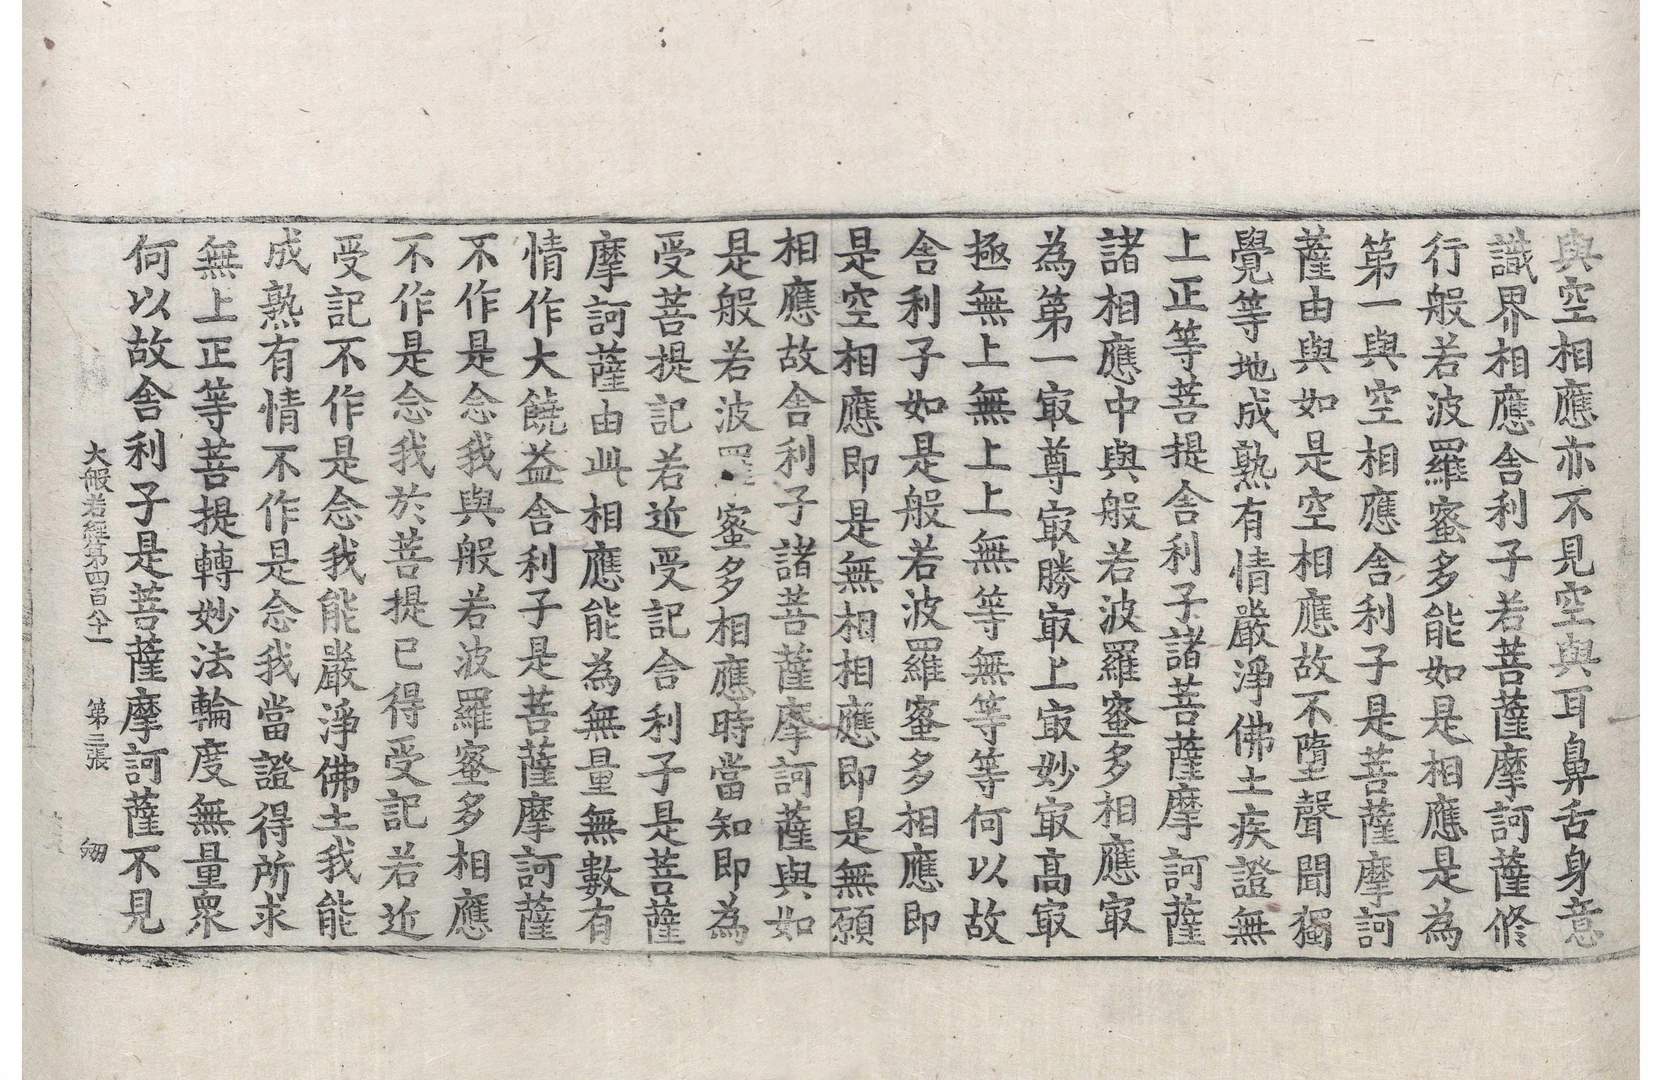 與空相應亦不見空與耳鼻舌身意
識界相應舍利子若菩薩摩訶薩修
行般若波羅蜜多能如是相應是為
第一與空相應舍利子是菩薩摩訶
薩由與如是空相應故不墮聲聞獨
覺等地成熟有情嚴淨佛土疾證無
上正等菩提舍利子諸菩薩摩訶薩
諸相應中與般若波羅蜜多相應㝡
為第一㝡尊㝡勝㝡上㝡妙㝡高㝡
極無上無上上無等無等等何以故
舍利子如是般若波羅蜜多相應即
是空相應即是無相相應即是無願
相應故舍利子諸菩薩摩訶薩與如
是般若波羅蜜多相應時當知即為
受菩提記若近受記舍利子是菩薩
摩訶薩由此相應能為無量無數有
情作大饒益舍利子是菩薩摩訶薩
不作是念我與般若波羅蜜多相應
不作是念我於菩提已得受記若近
受記不作是念我能嚴淨佛土我能
成熟有情不作是念我當證得所求
無上正等菩提轉妙法輪度無量衆
何以故舍利子是菩薩摩訶薩不見
大般若經第四百八十一 第三張 翔